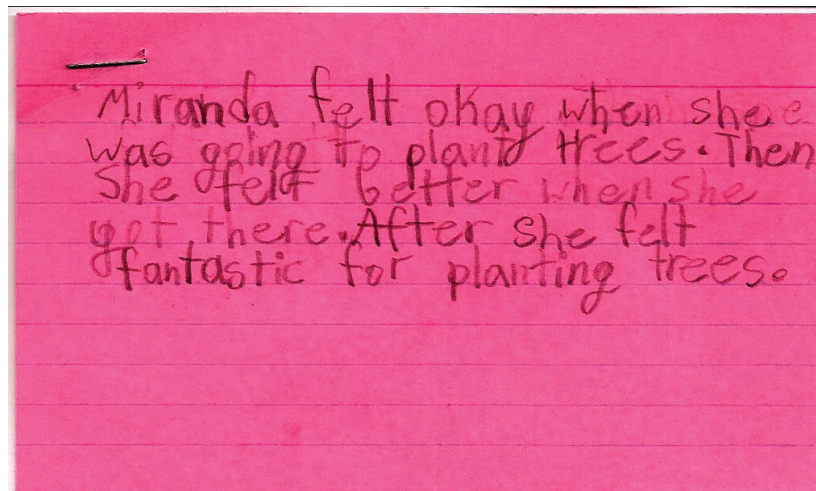 Miranda felt okay when she
was going to plant trees. Then
She felt better when she
got there. After she felt
fantastic for planting trees.